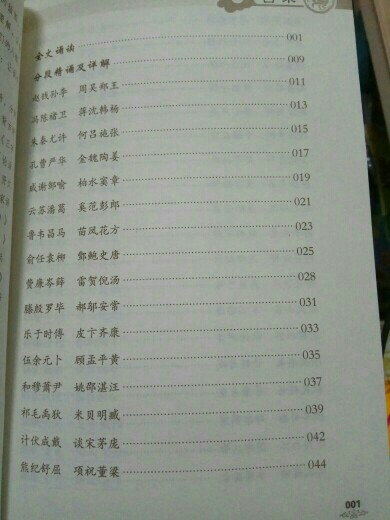 全文诵读……001
分段精诵及详解……009
赵钱孙李 周吴郑王……011
冯陈褚卫 蒋沈韩杨……013
朱秦尤许 何吕施张……015
孔曹严华 金魏陶姜……017
戚谢邹喻 柏水窦章……019
云苏潘葛 奚范彭郎……021
鲁韦昌马 苗凤花方……023
俞任袁柳 酆鲍史唐……025
费廉岑薛 雷贺倪汤……028
滕殷罗毕 郝邬安常……031
乐于时傅 皮卞齐康……033
伍余元卜 顾孟平黄……035
和穆萧尹 姚邵湛汪……037
祁毛禹狄 米贝明臧……039
计伏成戴 谈宋茅庞……042
熊纪舒屈 项祝董梁……044
001